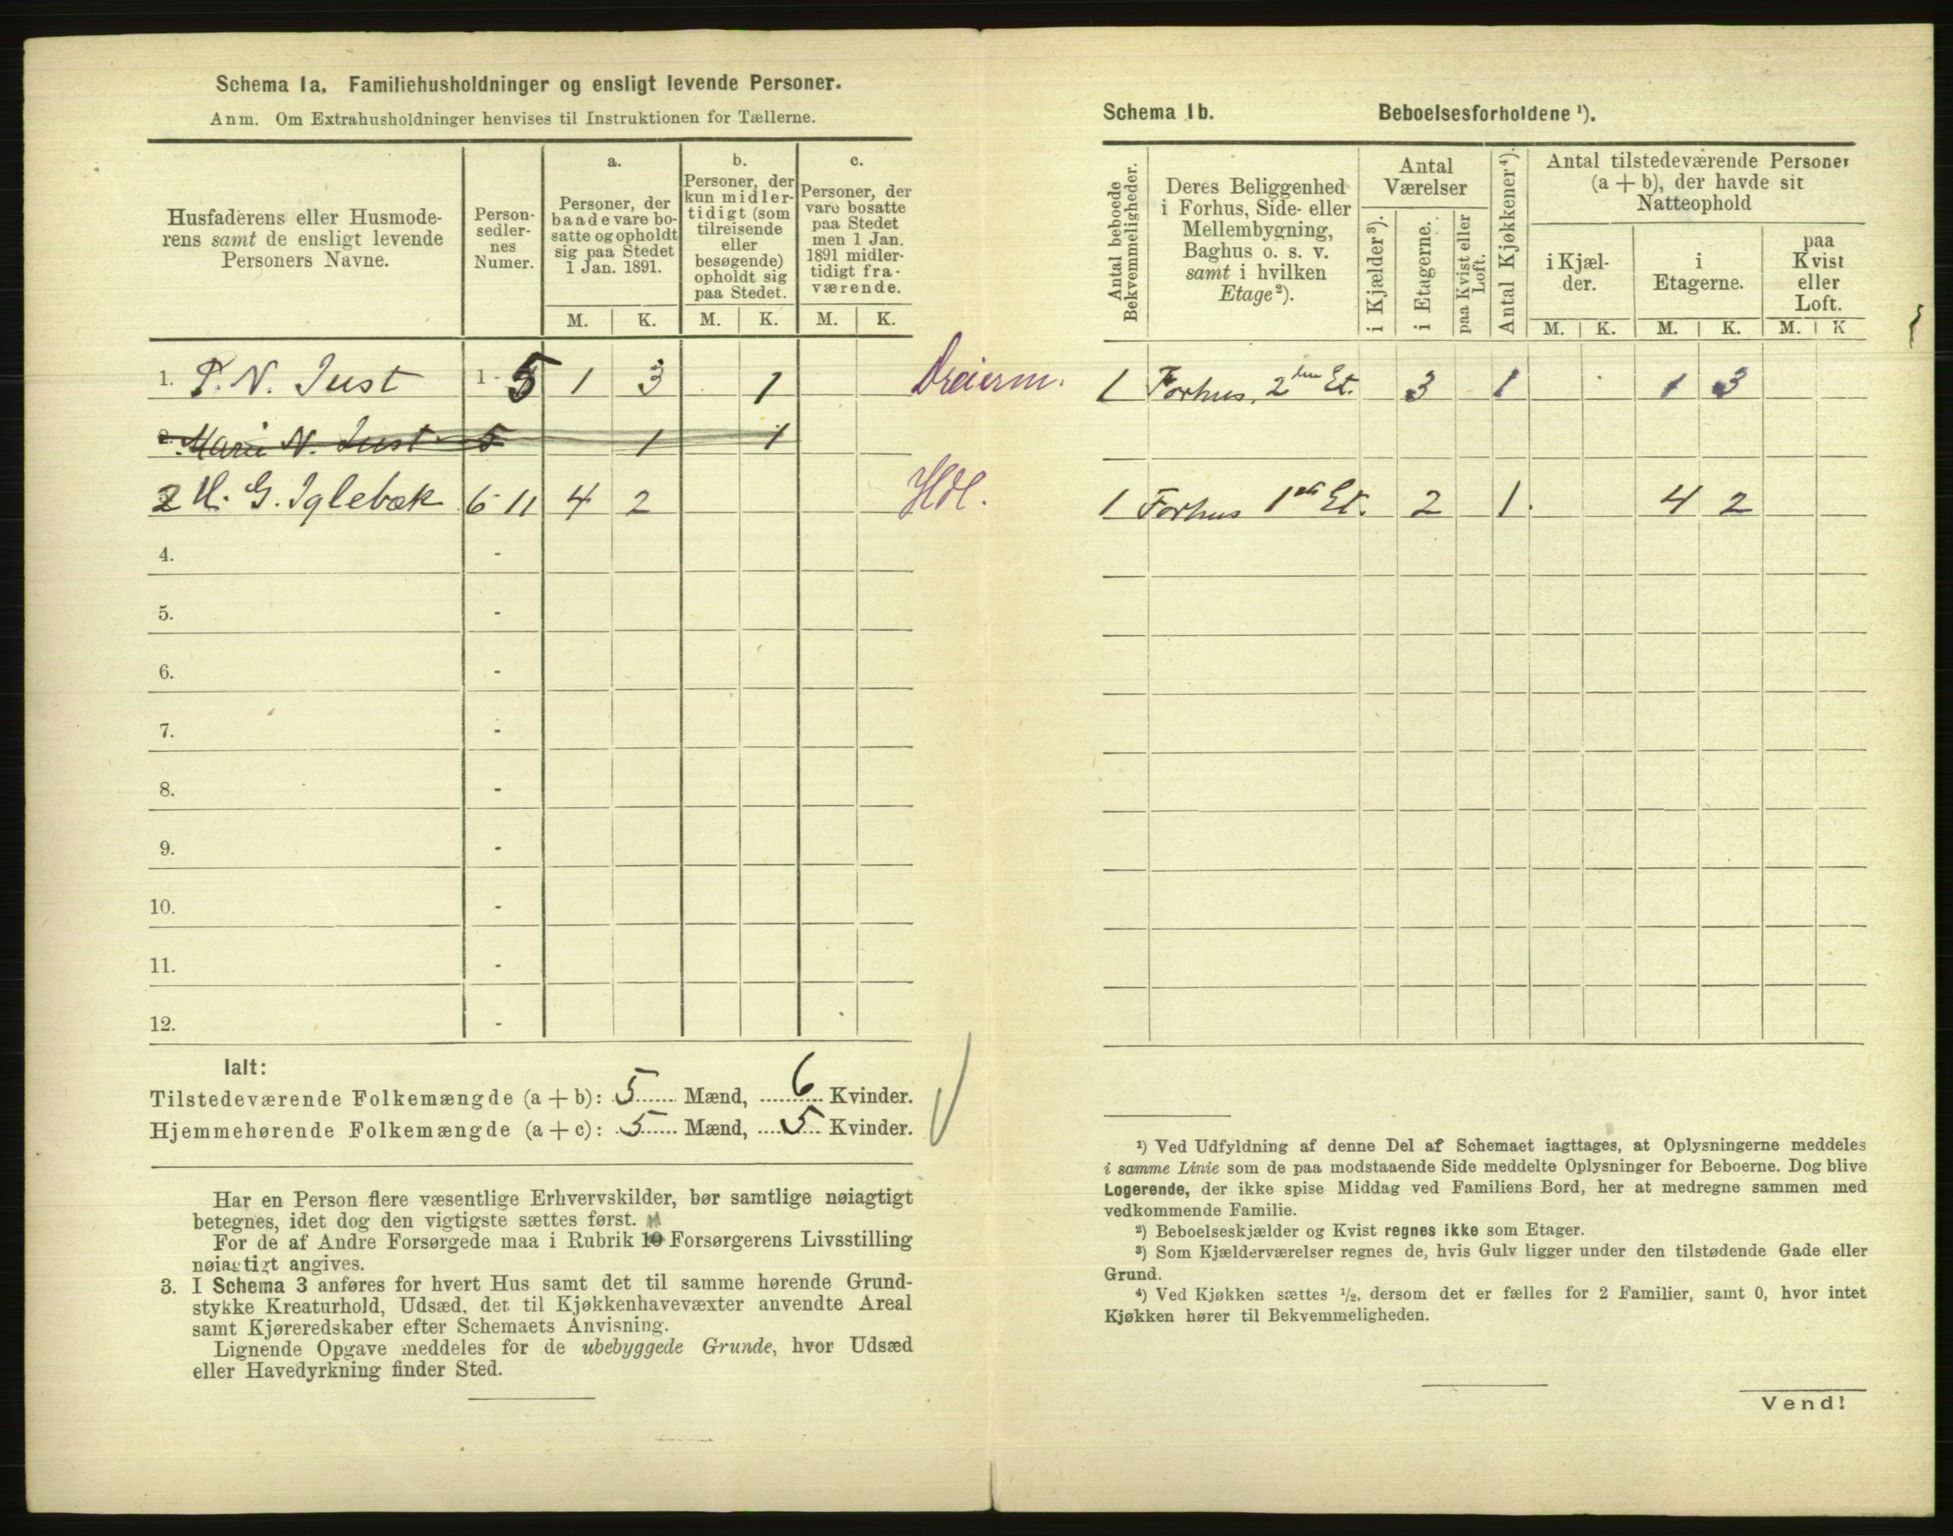 Schema 1a. Familiehusholdninger og ensligt levende Personer.
Anm. Om Extrahusholdninger henvises til Instruktionen for Tællerne.
Husfaderens eller Husmode-
rens samt de ensligt levende
Personers Navne.
Person-
sedler-
nes
Numer.
a.
Personer, der
baade vare bo-
satte og opholdt
sig paa Stedet
1 Jan. 1891.
b.
Personer, der
kun midler-
tidigt (som
tilreisende
eller
besøgende)
opholdt sig
paa Stedet.
c.
Personer, der
vare bosatte
paa Stedet
men 1 Jan.
1891 midler-
tidigt fra-
værende.
M. K. M. K. M. K.
1. P. N. Just 1 - 5 1 3 1 Dreierm.
2. Marie N. Just 5 1 1
2 H. G. Iglebæk 6 - 11 4 2 Hdl.
4. -
5. -
6. -
7. -
8. -
9. -
10. -
11. -
12. -
Ialt:
Tilstedeværende Folkemængde (a + b): 5 Mænd, 6 Kvinder.
Hjemmehørende Folkemængde (a + c): 5 Mænd, 5 Kvinder.
Har en Person flere væsentlige Erhvervskilder, bør samtlige nøiagtigt
betegnes, idet dog den vigtigste sættes først.
For de af Andre Forsørgede maa i Rubrik 10 Forsørgerens Livsstilling
nøiagtigt angives.
3. I Schema 3 anføres for hvert Hus samt det til samme hørende Grund-
stykke Kreaturhold, Udsæd, det til Kjøkkenhavevæxter anvendte Areal
samt Kjøreredskaber efter Schemaets Anvisning.
Lignende Opgave meddeles for de ubebyggede Grunde, hvor Udsæd
eller Havedyrkning finder Sted.
Schema 1b. Beboelsesforholdene ¹).
Antal beboede
Bekvemmeligheder.
Deres Beliggenhed
i Forhus, Side- eller
Mellembygning,
Baghus o. s. v.
samt i hvilken
Etage²).
Antal
Værelser
i Kjælder³).
i Etagerne.
paa Kvist eller
Loft.
Antal Kjøkkener⁴).
Antal tilstedeværende Personer
(a + b), der havde sit
Natteophold
i Kjæl-
der.
i
Etagerne.
paa
Kvist
eller
Loft.
M. K. M. K. M. K
1 Forhus, 2den Et. 3 1 1 3
1 Forhus 1ste Et. 2 1. 4 2
¹) Ved Udfyldning af denne Del af Schemaet iagttages, at Oplysningerne meddeles
i samme Linie som de paa modstaaende Side meddelte Oplysninger for Beboerne. Dog blive
Logerende, der ikke spise Middag ved Familiens Bord, her at medregne sammen med
vedkommende Familie.
²) Beboelseskjælder og Kvist regnes ikke som Etager.
³) Som Kjælderværelser regnes de, hvis Gulv ligger under den tilstødende Gade eller
Grund.
⁴) Ved Kjøkken sættes ½, dersom det er fælles for 2 Familier, samt 0, hvor intet
Kjøkken hører til Bekvemmeligheden.
Vend!